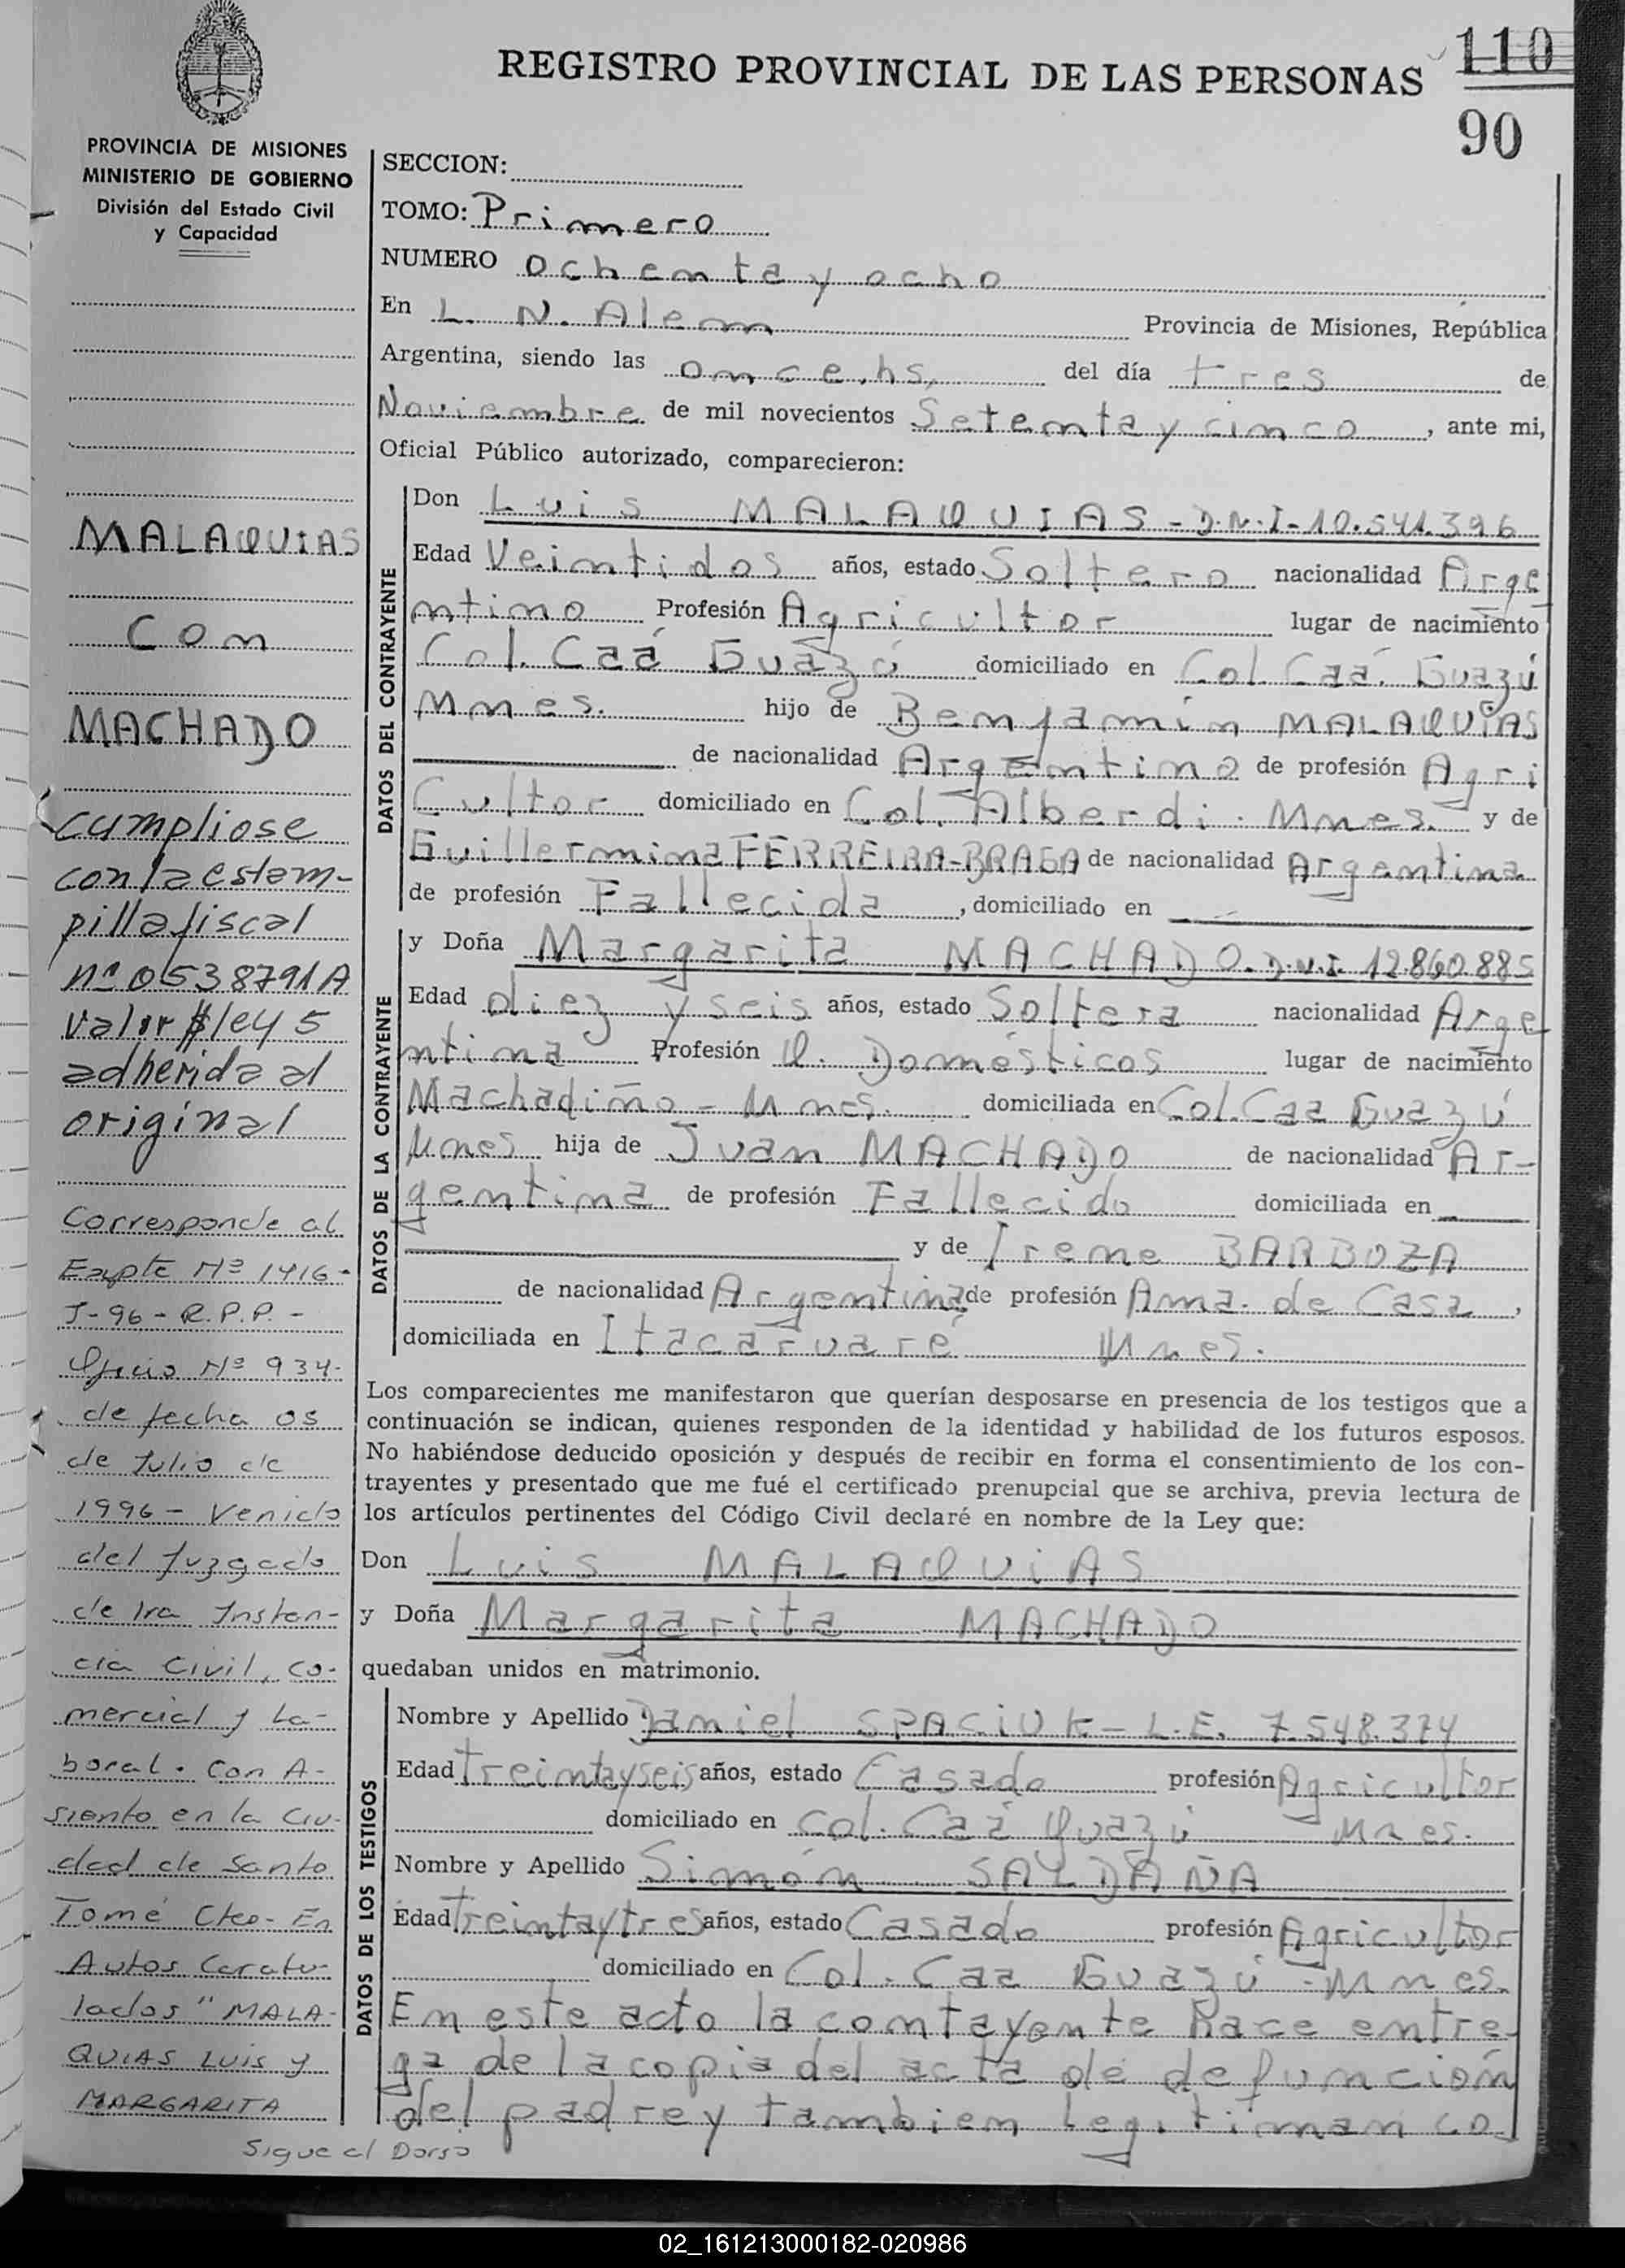 REGISTRO PROVINCIAL DE LAS PERSONAS
110
90
PROVINCIA DE MISIONES
MINISTERIO DE GOBIERNO
División del Estado Civil
y Capacidad
MALAQUIAS
Con
MACHADO
cumpliose
con la estam-
pilla fiscal
nº 0538791A
valor $ ley 5
adherida al
original
Corresponde al
Expte Nº 1416-
J-96-R.P.P.-
Oficio Nº 934-
de fecha 05
de Julio de
1996 - Venido
del Juzgado
de 1ra Instan-
cia Civil, Co-
mercial y La-
boral. Con A-
siento en la Ciu-
dad de Santo
Tomé Ctes- En
Autos Caratu-
lados "MALA-
QUIAS LUIS y
MARGARITA
Sigue al Dorso
SECCION:
TOMO: Primero
NUMERO ochenta y ocho
En L. N. Alem Provincia de Misiones, República
Argentina, siendo las once, hs, del día tres de
Noviembre de mil novecientos Setenta y cinco, ante mi,
Oficial Público autorizado, comparecieron:
DATOS DEL CONTRAYENTE
Don Luis MALAQUIAS - D.N.I-10.541.396
Edad Veintidos años, estado Soltero nacionalidad Arge
ntino Profesión Agricultor lugar de nacimiento
Col. Caá Guazú domiciliado en Col. Caá. Guazú
Mnes. hijo de Benjamín MALAQUIAS
de nacionalidad Argentino de profesión Agri
Cultor domiciliado en Col. Alberdi. Mnes. y de
Guillermina FERREIRA-BRAGA de nacionalidad Argentina
de profesión Fallecida, domiciliado en
DATOS DE LA CONTRAYENTE
y Doña Margarita MACHADO. D.N.I. 12860885
Edad diez y seis años, estado Soltera nacionalidad Arge
ntina Profesión Q. Domésticos lugar de nacimiento
Machadiño - Mnes. domiciliada en Col. Caa Guazú
Mnes hija de Juan MACHADO de nacionalidad Ar-
gentina de profesión Fallecido domiciliada en
y de Irene BARBOZA
de nacionalidad Argentina de profesión Ama. de Casa,
domiciliada en Itacaruaré Mnes.
Los comparecientes me manifestaron que querían desposarse en presencia de los testigos que a
continuación se indican, quienes responden de la identidad y habilidad de los futuros esposos.
No habiéndose deducido oposición y después de recibir en forma el consentimiento de los con-
trayentes y presentado que me fué el certificado prenupcial que se archiva, previa lectura de
los artículos pertinentes del Código Civil declaré en nombre de la Ley que:
Don Luis MALAQUIAS
y Doña Margarita MACHADO
quedaban unidos en matrimonio.
DATOS DE LOS TESTIGOS
Nombre y Apellido Daniel SPACIUK - L.E. 7.548.374
Edad Treintayseis años, estado Casado profesión Agricultor
domiciliado en Col. Caá Guazú Mnes.
Nombre y Apellido Simón SALDAÑA
Edad Treintaytres años, estado Casado profesión Agricultor
domiciliado en Col. Caa Guazú - Mnes.
En este acto la contayente hace entre-
ga de la copia del acta de defunción
del padre y tambien legitiman co
02_161213000182-020986